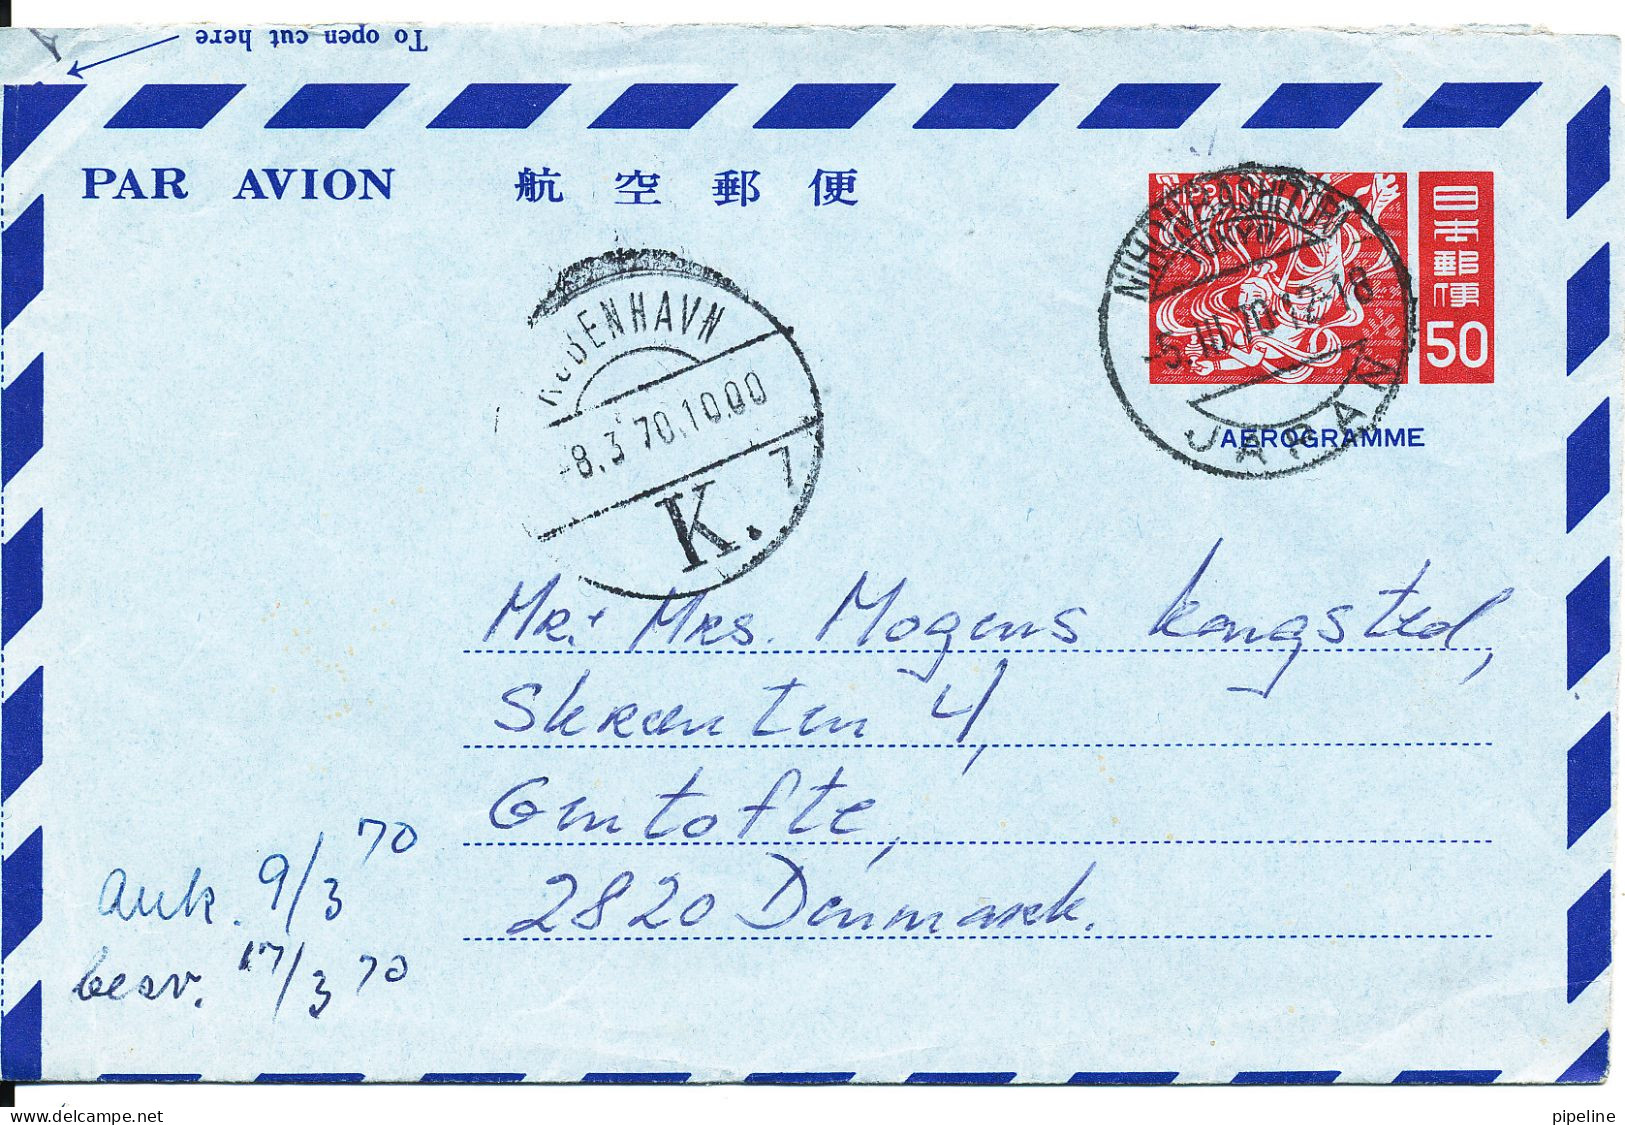 To open cut here
PAR AVION 航空郵便
NIPPON
日本郵便
50
NIHONBASHI
TOKYO
-5.III.70.12-18
JAPAN
AEROGRAMME
KØBENHAVN
-8.3.70.1000
K. 7
Mr. + Mrs. Mogens Kongsted,
Skrænten 4,
Gentofte,
2820 Denmark.
Ank. 9/3 70
besv. 17/3 70
pipeline